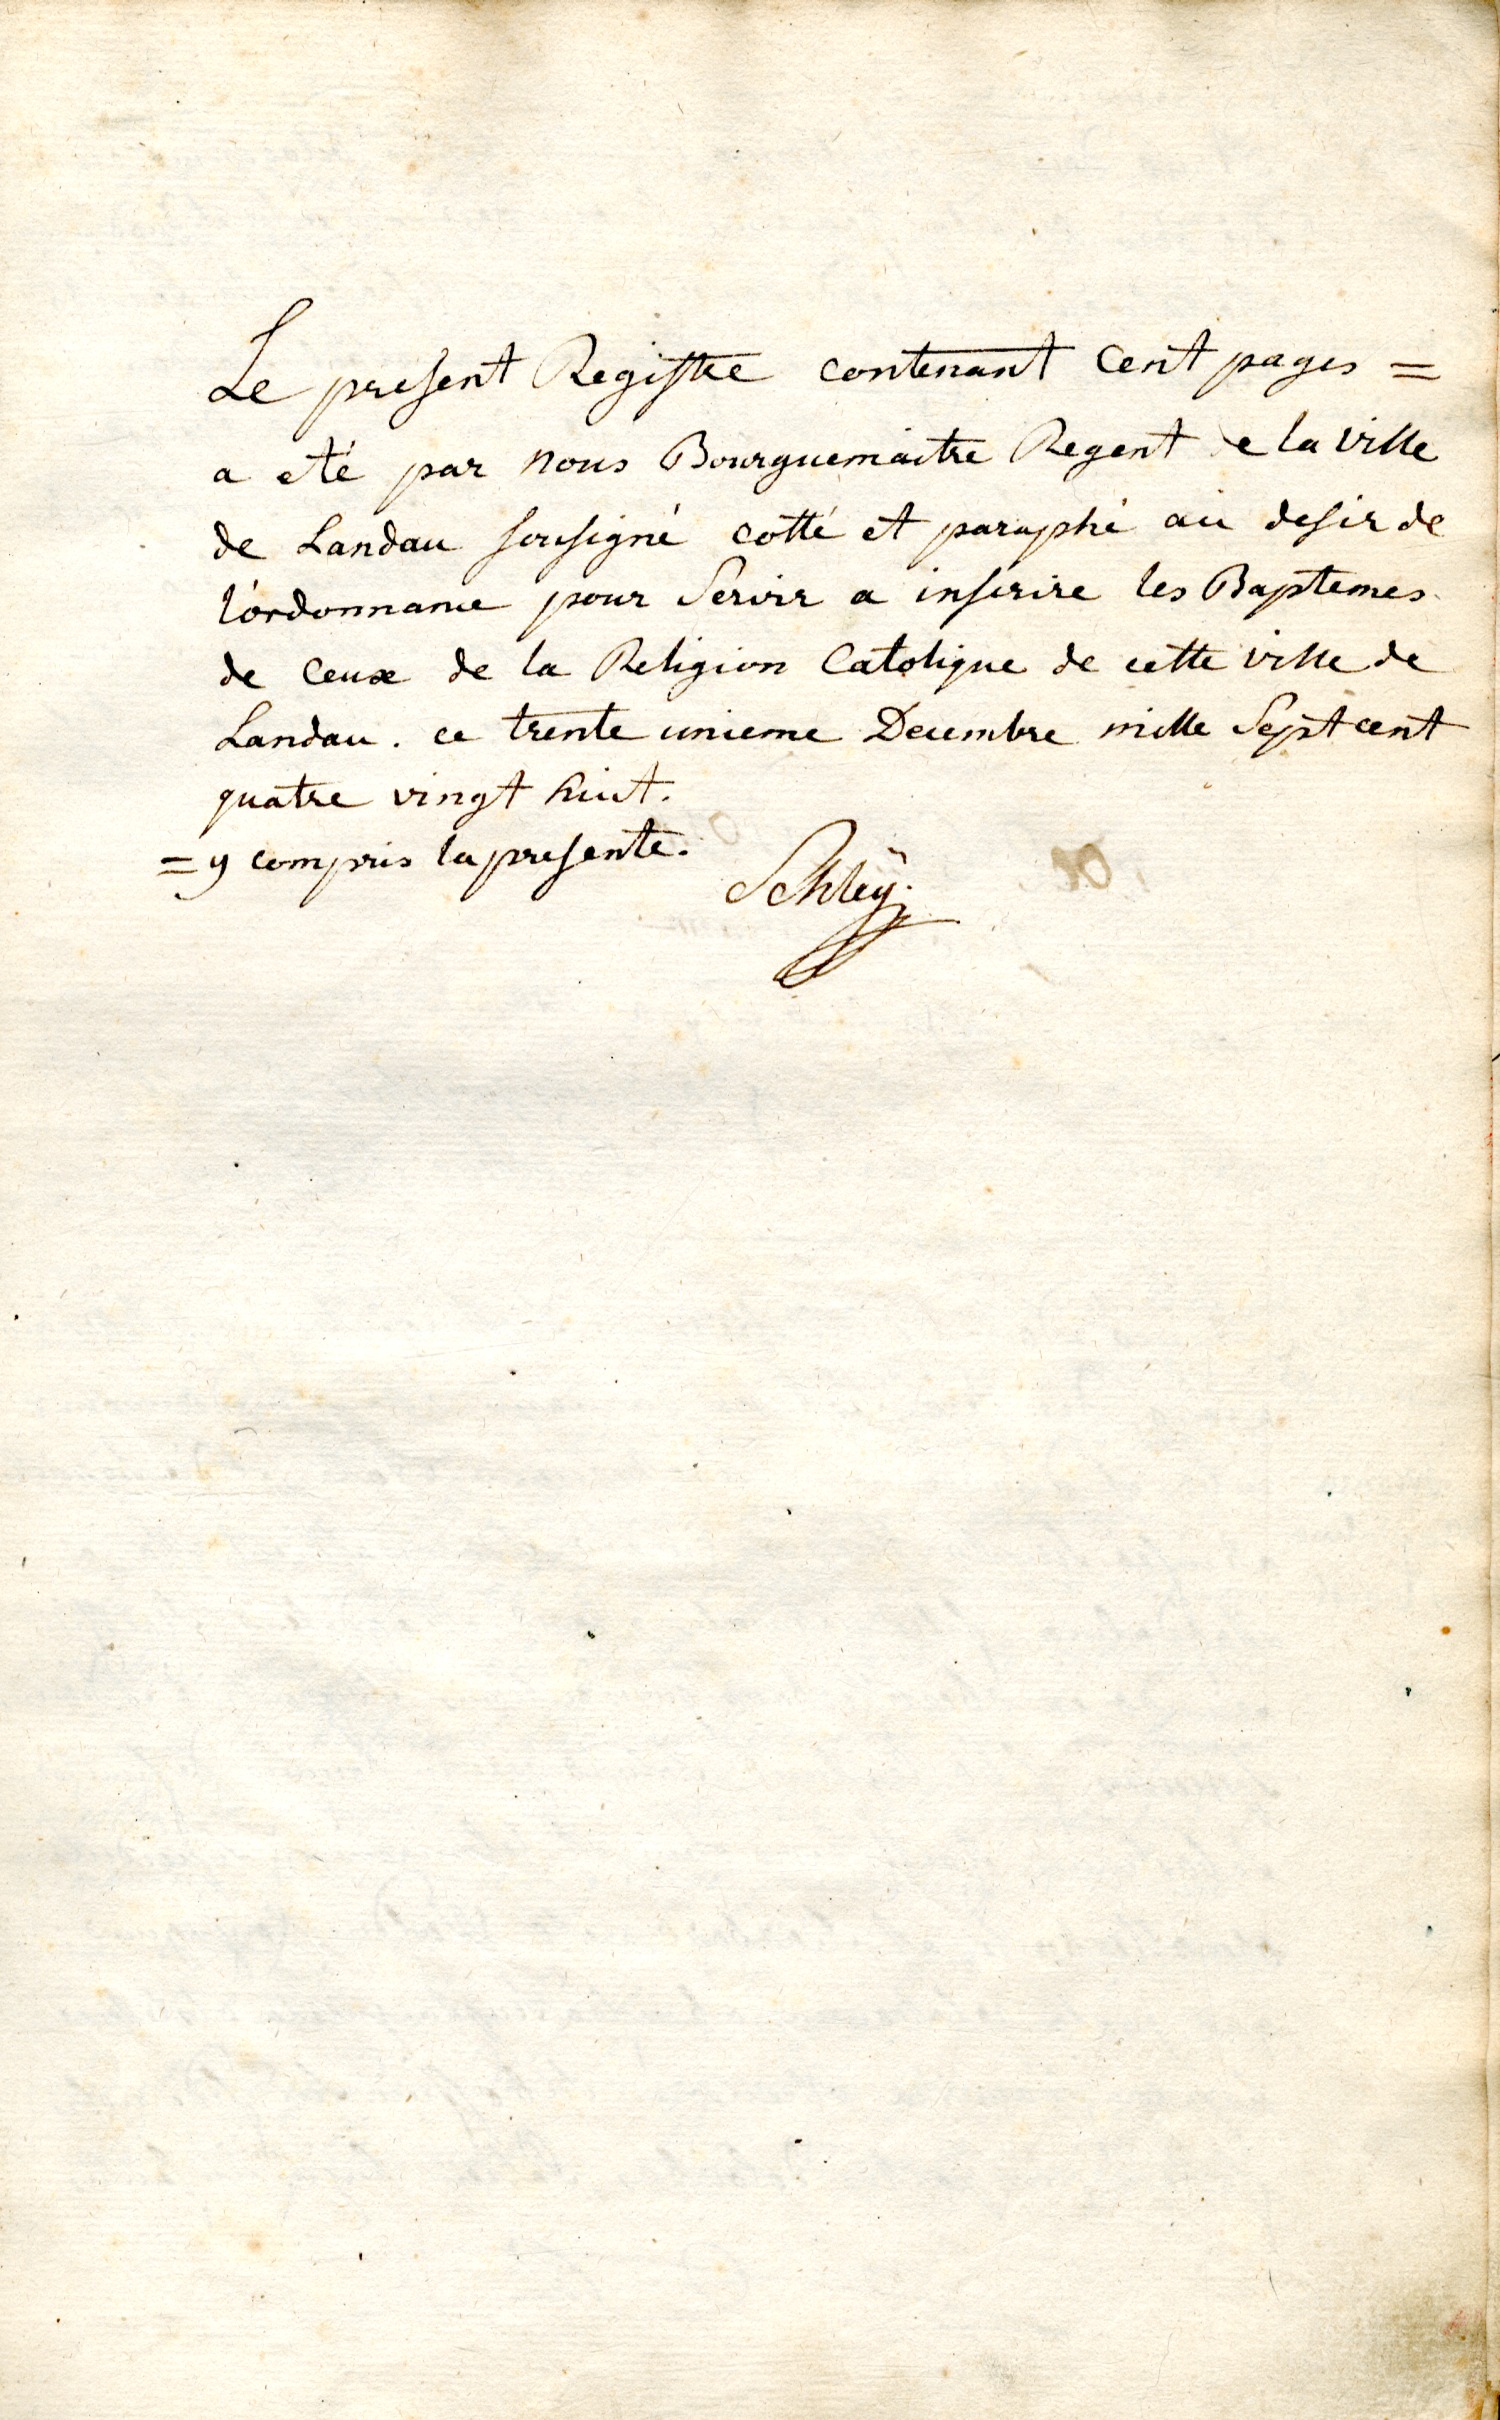 Le present Registre contenant Cent pages =
a eté par nous Bourguemaitre Regent de la ville
de Landau sousigné cotté et paraphé au desir de
l'ordonnance pour Servir a inscrire les Baptemes
de Ceux de la Religion Catolique de cette ville de
Landau. ce trente unieme Decembre mille Sept cent
quatre vingt huit.
= y compris la presente.
Schleÿ.